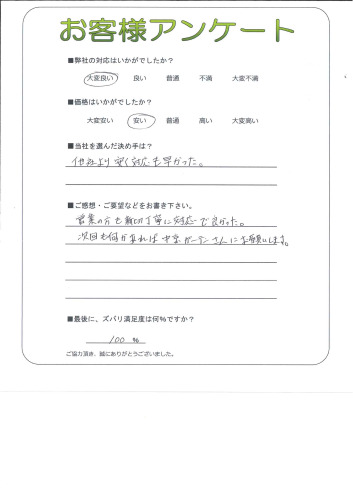 お客様アンケート
■弊社の対応はいかがでしたか？
大変良い 良い 普通 不満 大変不満
■価格はいかがでしたか？
大変安い 安い 普通 高い 大変高い
■当社を選んだ決め手は？
他社より安く対応も早かった。
■ご感想・ご要望などをお書き下さい。
営業の方も親切丁寧に対応で良かった。
次回も何かあれば ガーデンさんにお願いします。
■最後に、ズバリ満足度は何％ですか？
100 %
ご協力頂き、誠にありがとうございました。